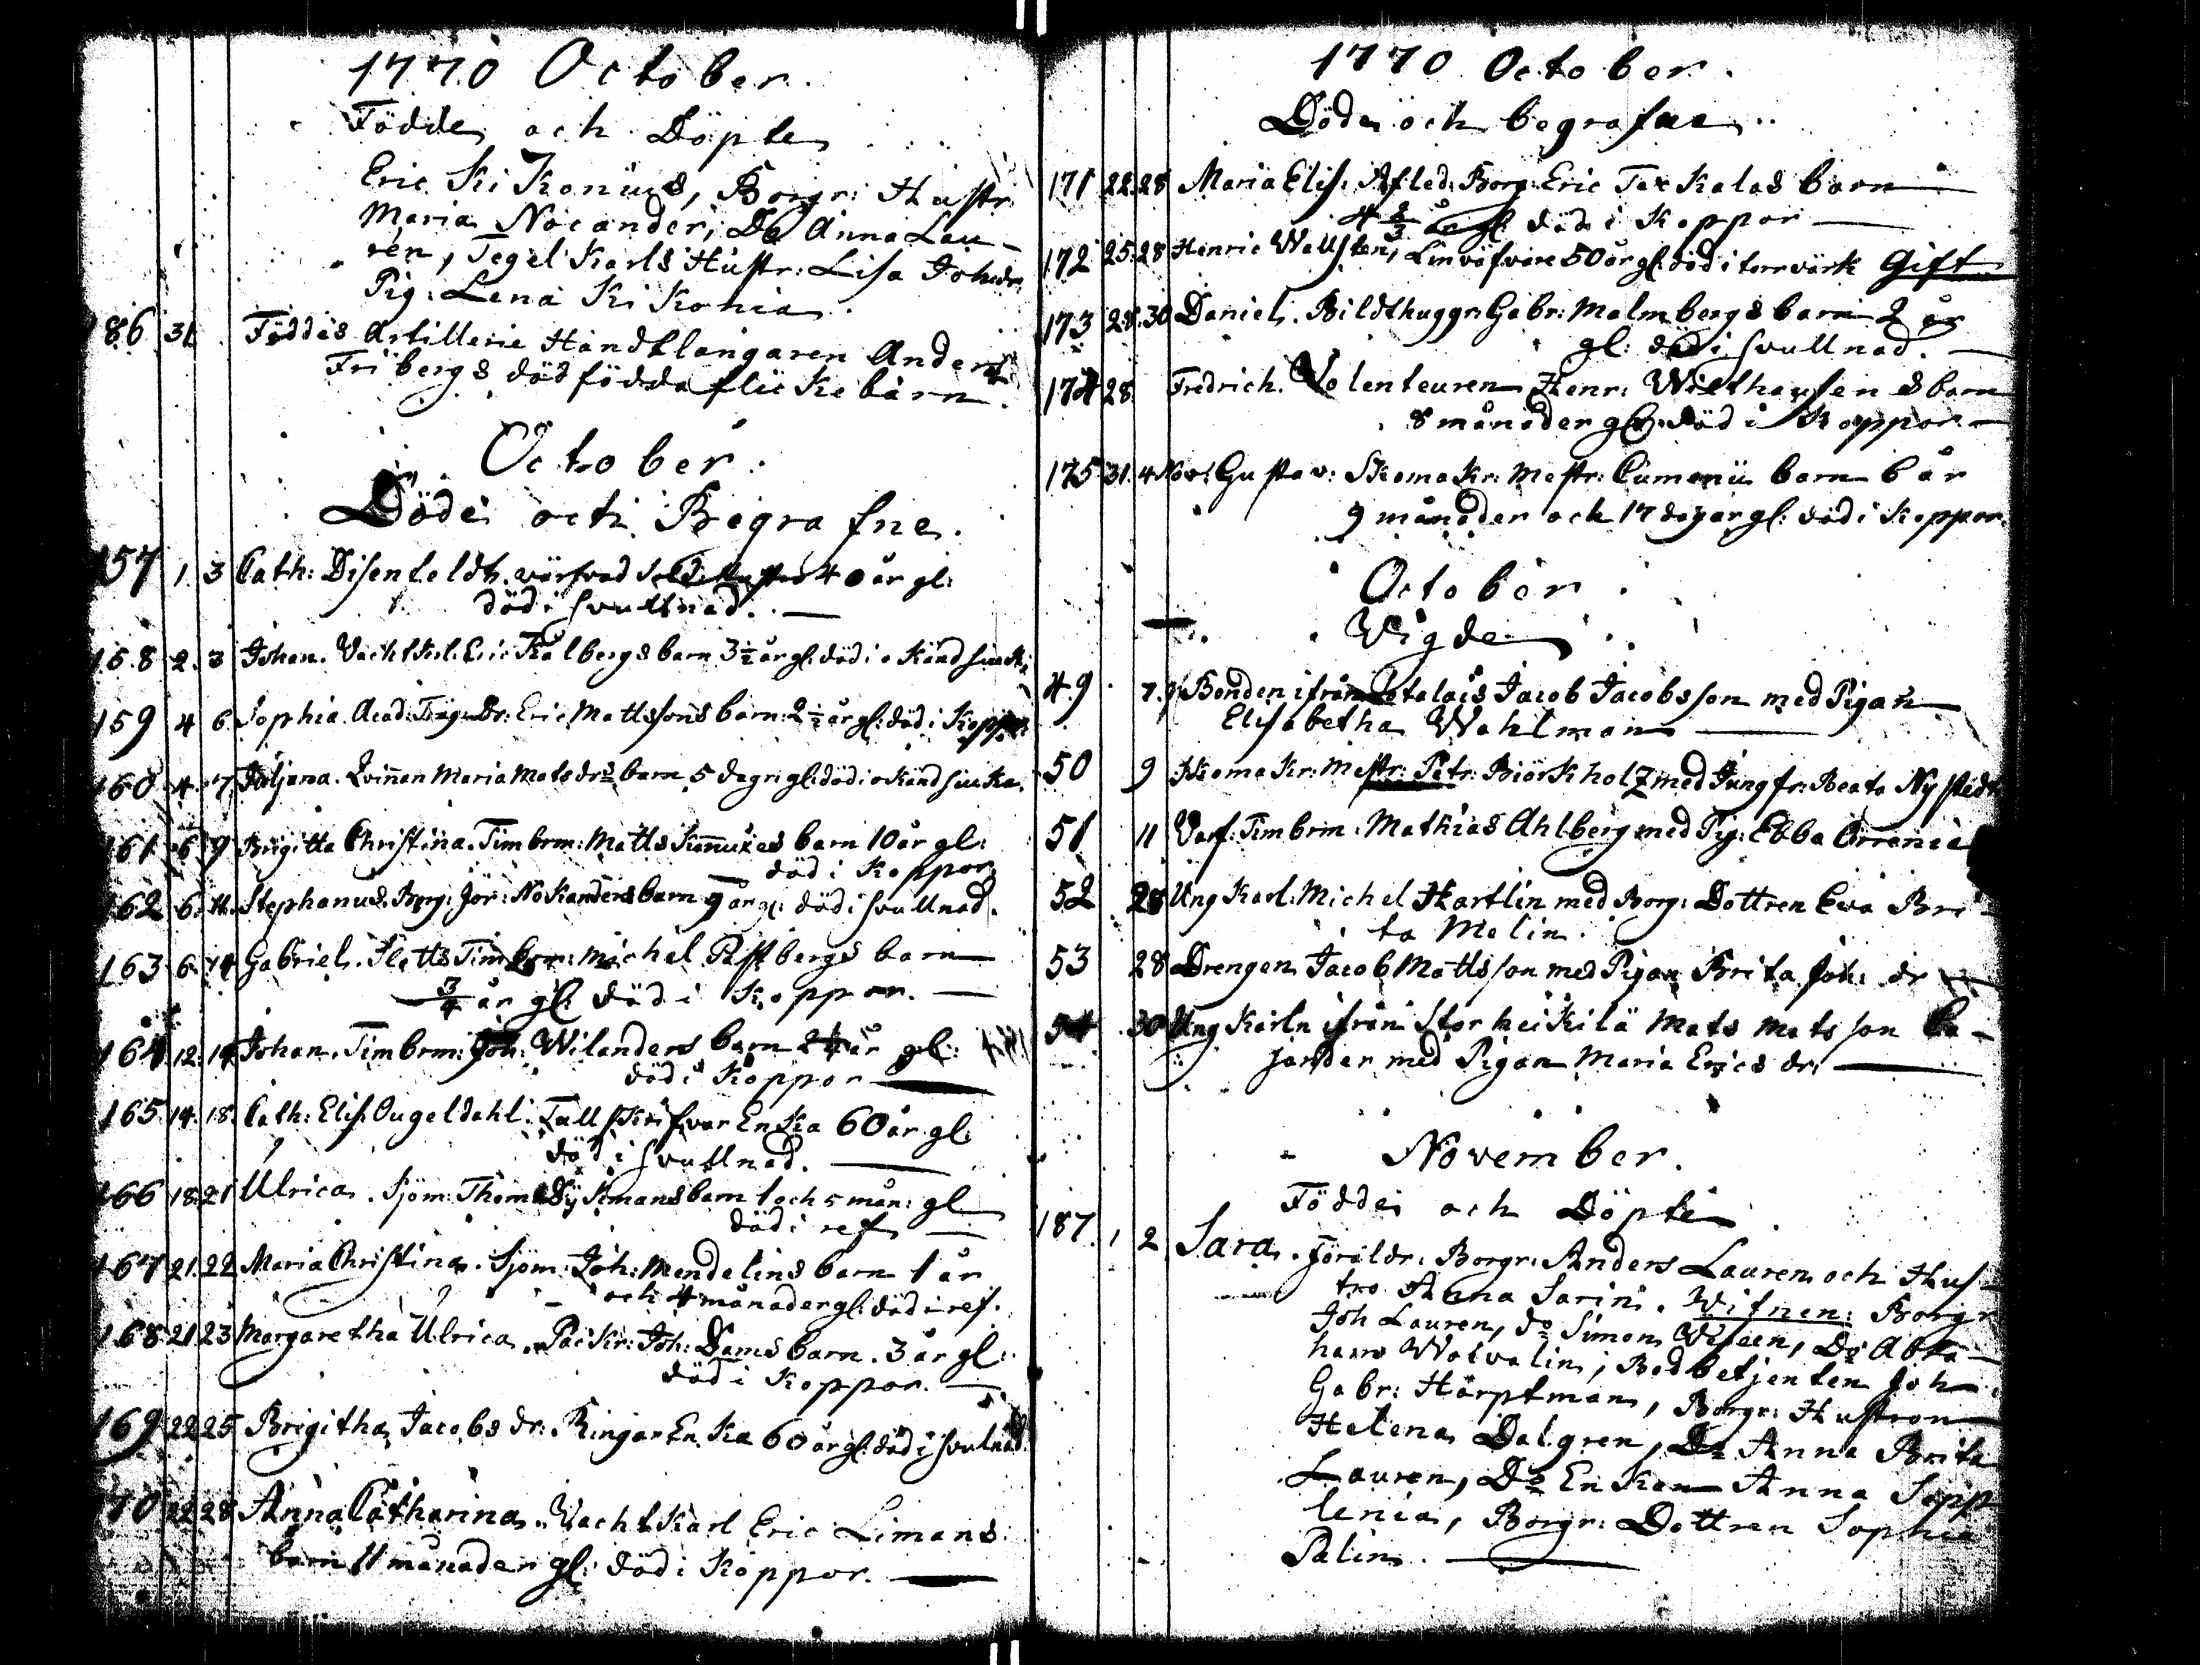 1770 October.
Födde och Döpte
Eric Kikonius, Borgr: Hustr:
Maria Nocander, Do Anna Lau-
ren, Tegel Karls Hustr: Lisa Johsdr:
Pig: Lena Kikonia.
186 31 Föddes Artillerie Handtlangaren Anders
Fribergs dödfödda flickebarn.
October.
Döde och Begrafne.
157 1. 3 Cath: Disenfeldt. värfvad 40 år gl:
död i svullnad.
158 2. 3 Johan. Vacht Karl. Eric Kalbergs barn 3½ år gl: död i okänd siuk:
159 4 6 Sophia. Acad: Trägm Dr: Eric Mattssons barn 2½ år gl: död i Koppor
160 4. 7 Juljana. Qvinnan Maria Matsdrs barn 5 dagr gl: död i okänd siuka.
161 6 9 Brigitta Christina. Timbrm: Matts barn 10 år gl:
död i Koppor
162 6. 11. Stephanus. Borg: Jör: Nokanders barn 9 år gl: död i svullnad.
163 6. 14 Gabriel. Slotts Timbrm: Michel Pastbergs barn
3/4 år gl: död i Koppor.
164 12. 14 Johan. Timbrm: Joh: Wilanders barn 2¼ år gl:
död i Koppor
165 14. 18. Cath: Elis: Ougeldahl. Tullskrifvar Enka 60 år gl:
död i svullnad.
166 18. 21 Ulrica. Sjöm: Thom: barn 1 och 5 mån: gl
död i ref
167 21. 22 Maria Christina. Sjöm: Joh: Mendelins barn 1 år
och 4 månader gl: död i ref.
168 21 23 Margaretha Ulrica. Packr: Joh: Dams barn. 3 år gl:
död i Koppor.
169 22 25 Brigitha Jacobs dr: Ringar Enka 60 år gl: död i svulnad.
170 22 28 Anna Catharina. Vacht Karl Eric Limans
barn 11 månader gl: död i Koppor.
1770 October.
Döde och begrafne
171 22. 28 Maria Elis: Afled: Borg: Eric Tackalas barn
4 år gl: död i Koppor
172 25. 28 Henric Wallsten, Linväfvare 50 år gl: död i torrvärk Gift
173 28. 30 Daniel. Bildthuggr: Gabr: Malmbergs barn 2 år
gl: död i svullnad.
174 28 Fredrich. Volenteuren Henr: Wilthausens barn
8 månader gl: död i Koppor
175 31. 4 Nov: Gustav: Skomakr: Mestr: Cumenii barn 6 år
9 månader och 17 dagar gl: död i Koppor.
October
Wigde
49 7. Bonden ifrån Jacob Jacobsson med Pigan
Elisabetha Wahlman
50 9 Skomakr: Mestr: Petr: Biörkholz med Jungfr: Beata Nystedt
51 11 Varf: Timbrm: Mathias Ahlberg med Pig: Ebba Orrenia
52 28 Ung Karl. Michel Hartlin med Borg: Dottren Eva Bri-
ta Melin.
53 28 Drengen Jacob Mattsson med Pigan Brita Joh: dr
54 30 Ung Karln ifrån Storheikkilä Mats Matsson Ca-
jander med Pigan Maria Erics dr:
November.
Födde och Döpte
187. 1 2 Sara. Föräldr: Borgr: Anders Lauren och Hus-
tro Anna Sarin. Witnen: Borgr
Joh Lauren, do Simon Wiseen, Do Abra-
ham Watvalin, Bodbetjenten Joh:
Gabr: Harptman, Borgr: Hustron
Helena Dalgren, Do Anna Brita
Lauren, Do Enkan Anna Sepp
lenia, Borgr: Dottren Sophia
Palin.